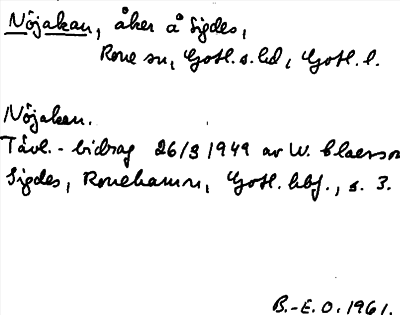 Nöjakan, åker å Sigdes,
Rone sn, Gotl. s. hd, Gotl. l.
Nöjakan.
Tävl.-bidrag 26/3 1949 av W. Claesson
Sigdes, Ronehamn, Gotl. hbf., s. 3.
B.-E. O. 1961.